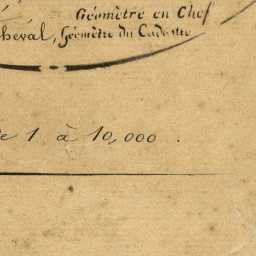 Géomètre en Chef
Cheval, Géomètre du Cadastre
e 1 à 10,000.